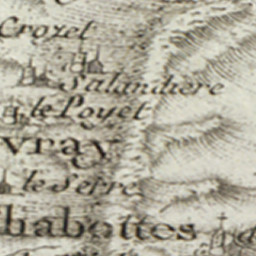 Crozel
Salandiere
le Poyet
vray
le Serre
habottes
d